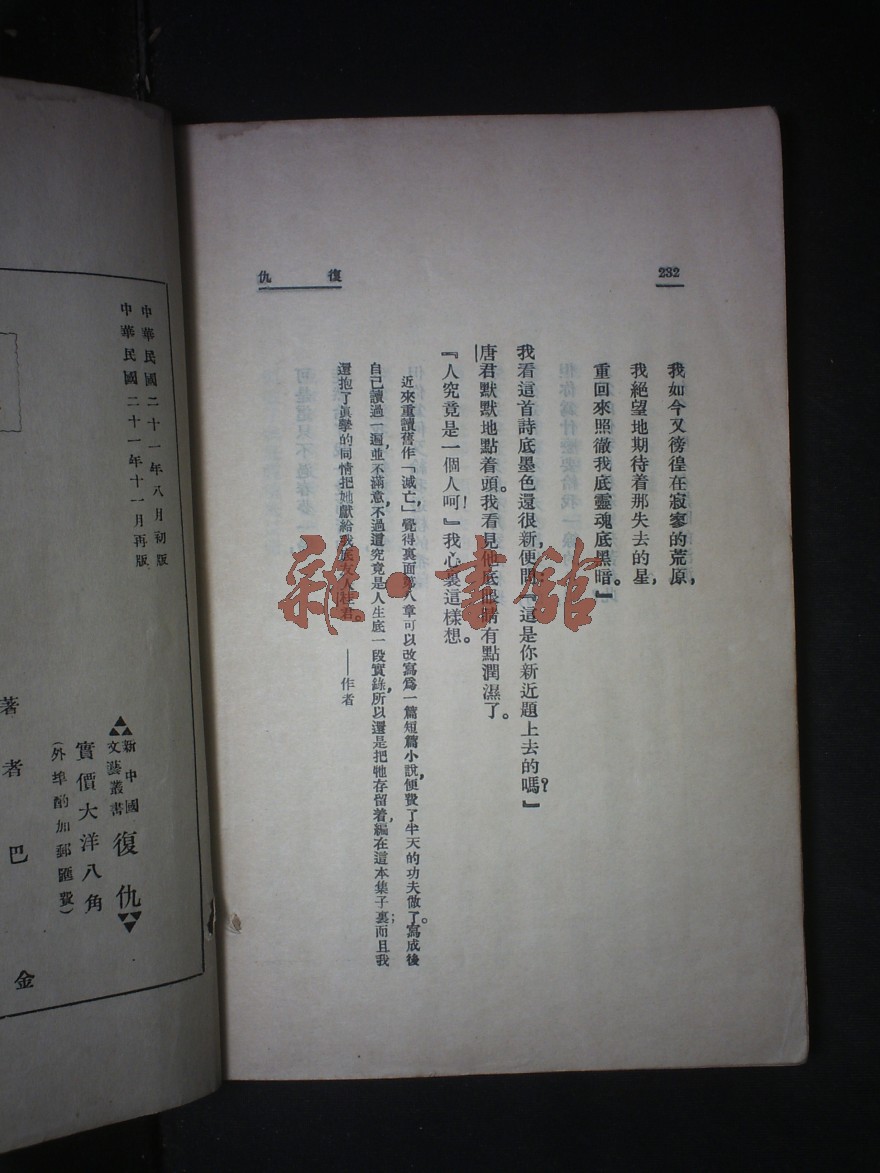 232
復仇
我如今又徬徨在寂寥的荒原，
我絕望地期待着那失去的星，
重回來照徹我底靈魂底黑暗。』
我看這首詩底墨色還很新，便問：『這是你新近題上去的嗎？』
唐君默默地點着頭。我看見他底眼睛有點潤濕了。
『人究竟是一個人呵！』我心裏這樣想。
近來重讀舊作「滅亡」，覺得裏面第八章可以改寫爲一篇短篇小說，便費了半天的功夫做了。寫成後
自己讀過一遍，並不滿意，不過這究竟是人生底一段實錄，所以還是把牠存留着，編在這本集子裏；而且我
還抱了眞摯的同情把她獻給我底友人桂君。　——作者
中華民國二十一年八月初版
中華民國二十一年十一月再版
新中國文藝叢書
復仇
實價大洋八角
（外埠酌加郵匯費）
著者　巴金
雜·書館